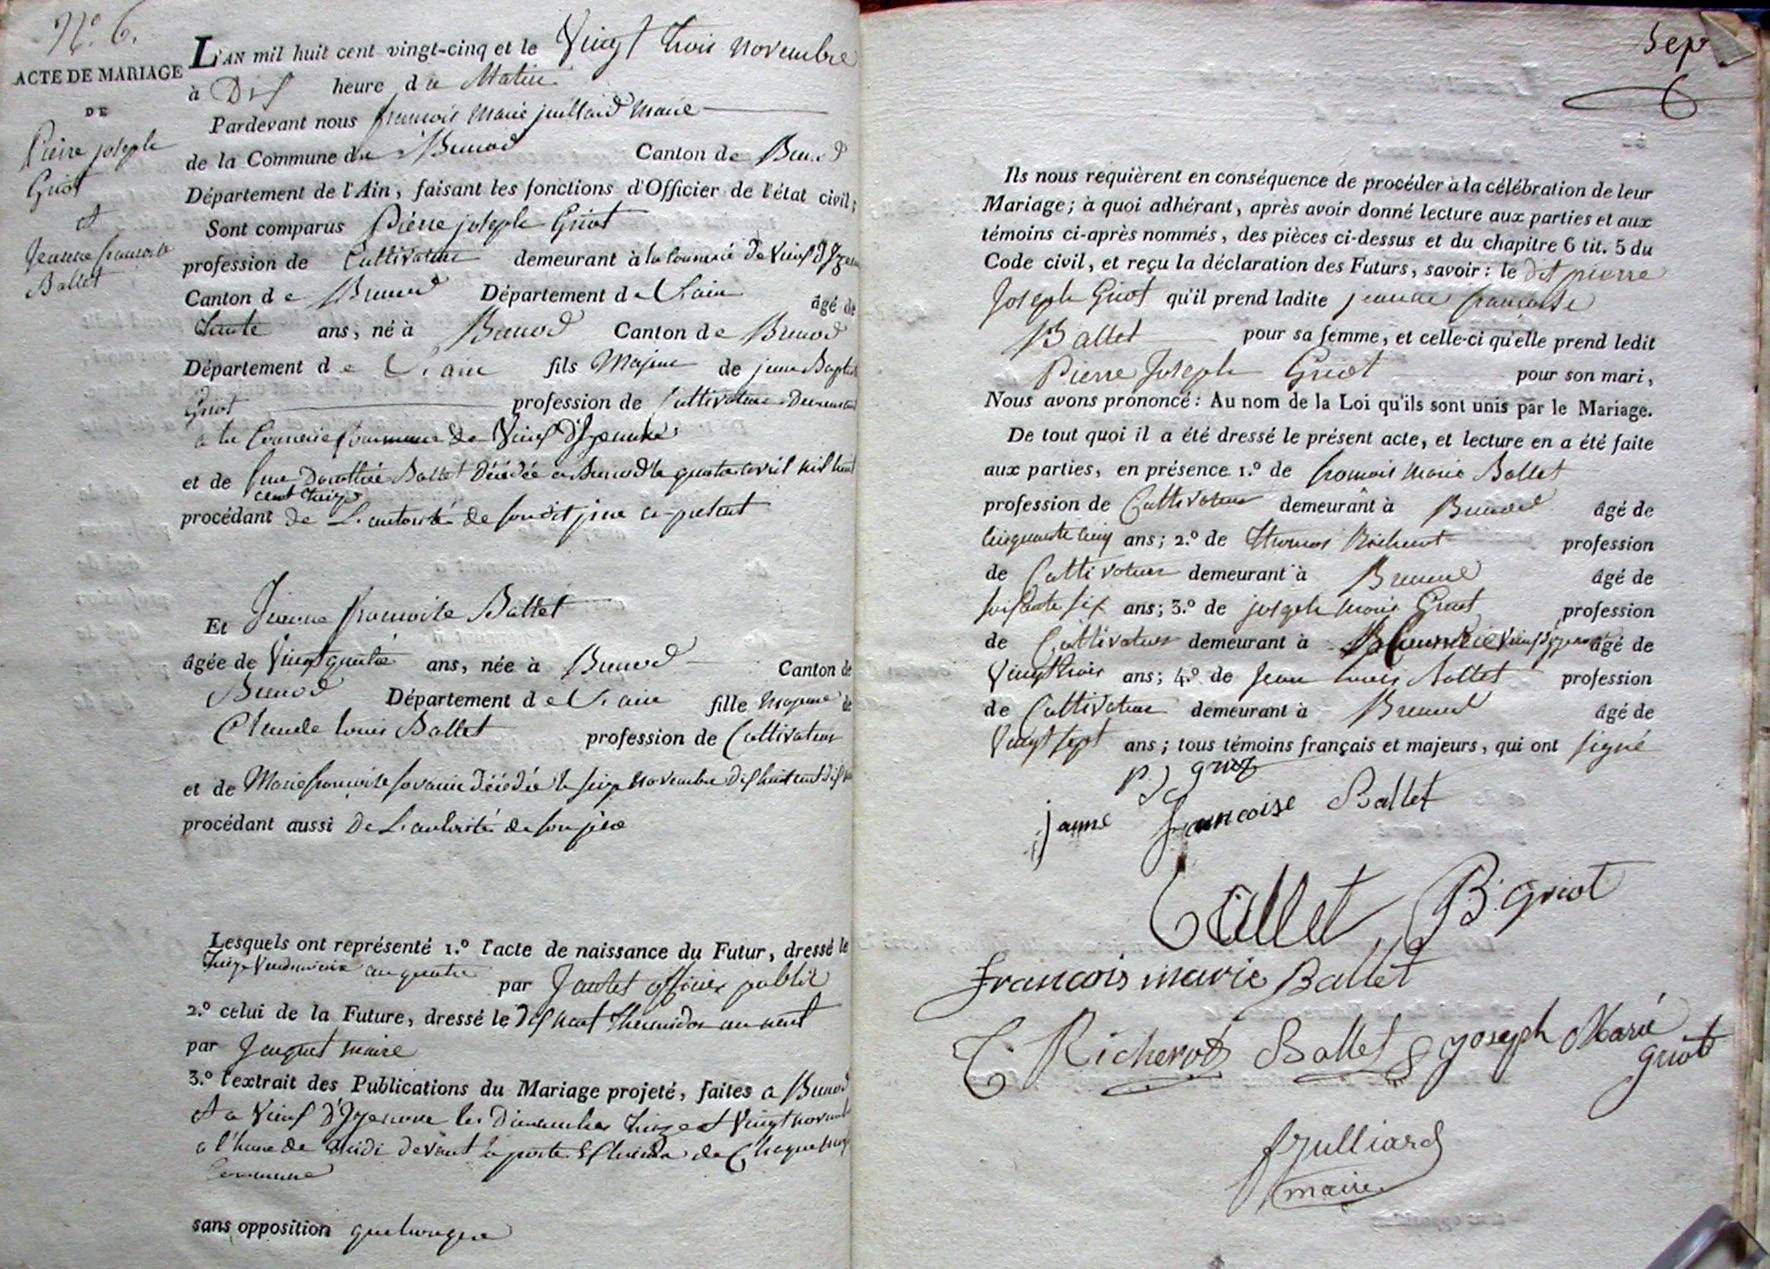 N.º 6.
ACTE DE MARIAGE
DE
Pierre joseph
Griot
et
Jeanne francoise
Ballet
L'AN mil huit cent vingt-cinq et le Vingt trois novembre
à Dix heure du Matin
Pardevant nous francois Marie juilliard maire
de la Commune de Brenod Canton de Brenod
Département de l'Ain, faisant les fonctions d'Officier de l'état civil;
Sont comparus Pierre joseph Griot
profession de Cultivateur demeurant à la Couvrerie de Vieux d'Izenave
Canton de Brenod Département de L'ain âgé de
trente ans, né à Brenod Canton de Brenod
Département de L'ain fils Majeur de jean Baptiste
Griot profession de Cultivateur Demeurant
a la Commune de Vieux d'Izenave
et de feue Dorothée Ballet Décédée a Brenod le quatre avril mil huit
cent treize
procédant de L'autorité de son dit père ci-présent
Et Jeanne francoise Ballet
âgée de Vingt quatre ans, née à Brenod Canton de
Brenod Département de L'ain fille majeure de
Claude Louis Ballet profession de Cultivateur
et de Marie françoise décédée le seize novembre dix huit cent dix
procédant aussi De L'autorité de son père
Lesquels ont représenté 1.º l'acte de naissance du Futur, dressé le
treize Vendemiaire an quatre par officier public
2.º celui de la Future, dressé le Dix neuf thermidor an neuf
par Jacquet maire
3.º l'extrait des Publications du Mariage projeté, faites a Brenod
et a Vieux d'Izenave les Dimanches treize et Vingt novembre
a l'heure de midi devant la porte de Chaque
Commune
sans opposition quelconque
Sept
Ils nous requièrent en conséquence de procéder à la célébration de leur
Mariage; à quoi adhérant, après avoir donné lecture aux parties et aux
témoins ci-après nommés, des pièces ci-dessus et du chapitre 6 tit. 5 du
Code civil, et reçu la déclaration des Futurs, savoir: le dit pierre
Joseph Griot qu'il prend ladite jeanne francoise
Ballet pour sa femme, et celle-ci qu'elle prend ledit
Pierre Joseph Griot pour son mari,
Nous avons prononcé: Au nom de la Loi qu'ils sont unis par le Mariage.
De tout quoi il a été dressé le présent acte, et lecture en a été faite
aux parties, en présence 1.º de francois Marie Ballet
profession de Cultivateur demeurant à Brenod âgé de
Cinquante cinq ans; 2.º de Thomas Richerot profession
de Cultivateur demeurant à Brenod âgé de
soixante six ans; 3.º de joseph Marie Griot profession
de Cultivateur demeurant à âgé de
Vingt trois ans; 4.º de Jean Louis Ballet profession
de Cultivateur demeurant à Brenod âgé de
Vingt sept ans; tous témoins français et majeurs, qui ont signé
P. J. griot
janne francoise Ballet
Ballet B. griot
francois marie Ballet
T. Richerot Ballet joseph Marie
griot
f. Julliard
maire